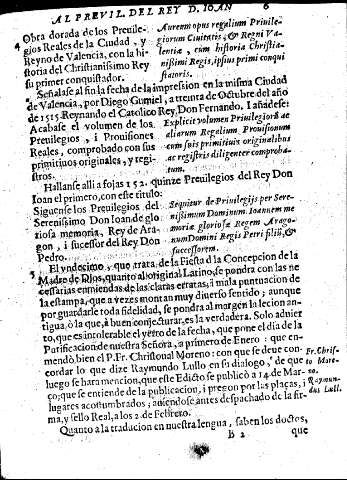 AL PREVIL. DEL REY D. IOAN 6
Obra dorada de los Preuile-
gios Reales de la Ciudad, y
Reyno de Valencia, con la hi-
storia del Christianissimo Rey
su primer conquistador.
Aureum opus regalium Priuile-
giorum Ciuitatis, & Regni Va-
lentiæ, cum historia Christia-
nissimi Regis, ipsius primi conqui
statoris.
Señalase al fin la fecha de la impression en la misma Ciudad
de Valencia, por Diego Gumiel, a treinta de Octubre del año
de 1515. Reynando el Catolico Rey Don Fernando. I añadese:
Acabase el volumen de los
Preuilegios, i Prouisiones
Reales, comprobado con sus
primitiuos originales, y regi-
stros.
Explicit volumen Priuilegiorũ ac
aliarum Regalium, Prouisionum
cum suis primitiuis originalibus
ac registris diligenter comproba-
tum.
Hallanse alli a fojas 152. quinze Preuilegios del Rey Don
Ioan el primero, con este titulo:
Siguense los Preuilegios del
Serenissimo Don Ioan de glo
riosa memoria, Rey de Ara-
gon, i sucessor del Rey Don
Pedro.
Sequitur de Priuilegijs per Sere-
nissimum Dominum Ioannem me
moriæ gloriosæ Regem Arago-
num Domini Regis Petri filiũ, &
successorem.
El vndecimo, que trata de la Fiesta d la Concepcion de la
Madre de Dios, quanto al original Latino, se pondra con las ne
cessarias enmiendas de las claras erratas, i mala puntuacion de
la estampa, que a vezes montan muy diuerso sentido; aunque
por guardarle toda fidelidad, se pondra al margen la lecion an-
tigua, ò la que, à buen conjecturar, es la verdadera. Solo aduier
to, que es intolerable el yerro de la fecha, que pone el dia de la
Purificacion de nuestra Señora, a primero de Enero: que en-
mendò bien el P. Fr. Christoual Moreno: con que se deue con-
cordar lo que dize Raymundo Lullo en su dialogo, de que
luego se hara mencion, que este Edicto se publicò a 14 de Mar-
ço; que se entiende de la publicacion, i pregon por las plaças, i
lugares acostumbrados; auiendose antes despachado de la fir-
ma, y sello Real, a los 2. de Febrero.
Fr. Christ-
o More-
no.
Raymun-
dus Lull.
Quanto a la traducion en nuestra lengua, saben los doctos,
B 2 que